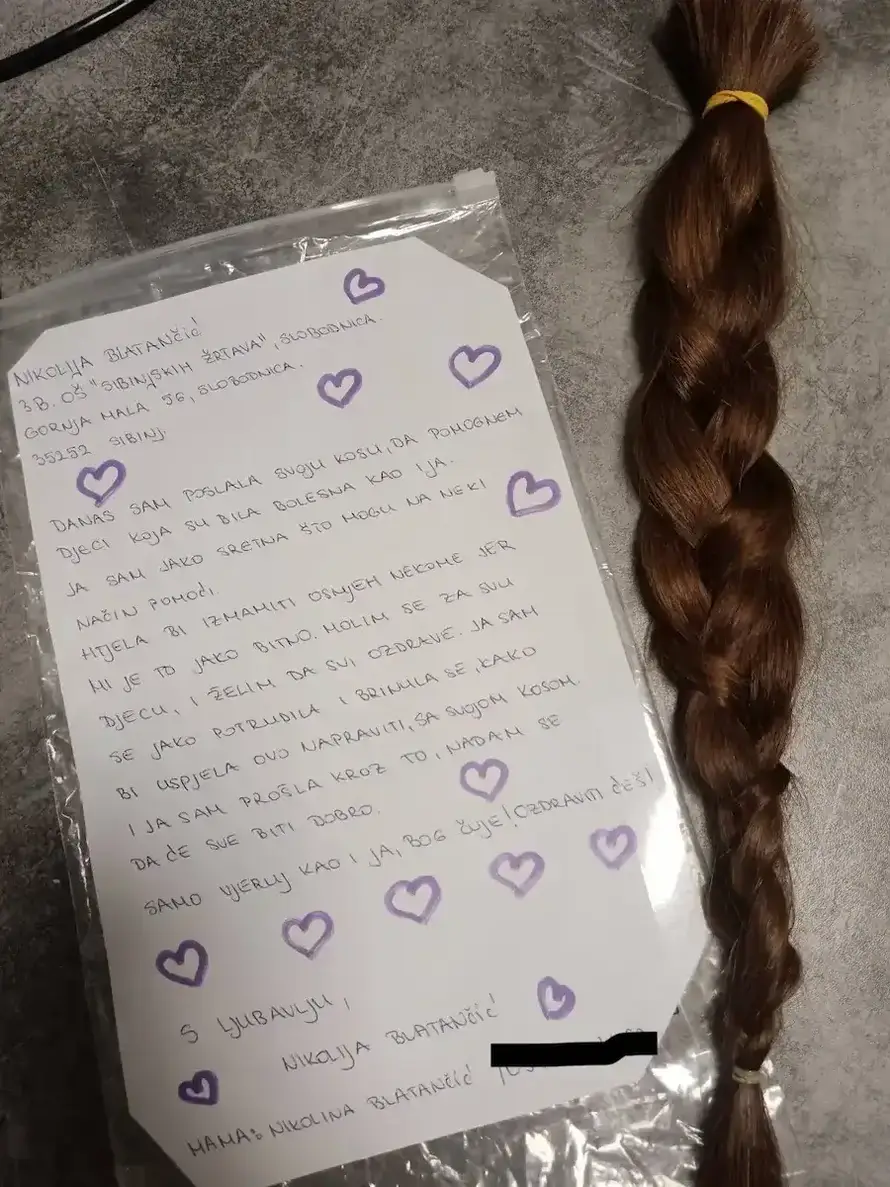 NIKOLIJA BLATANČIĆ
3B. OŠ "SIBINJSKIH ŽRTAVA", SLOBODNICA.
GORNJA MALA 96, SLOBODNICA.
35252 SIBINJ.
DANAS SAM POSLALA SVOJU KOSU, DA POMOGNEM
DJECI KOJA SU BILA BOLESNA KAO IJA.
JA SAM JAKO SRETNA ŠTO MOGU NA NEKI
NAČIN POMOĆI.
HTJELA BI IZMAMITI OSMJEH NEKOME JER
MI JE TO JAKO BITNO. MOLIM SE ZA SVU
DJECU, I ŽELIM DA SVI OZDRAVE. JA SAM
SE JAKO POTRUDILA I BRINULA SE, KAKO
BI USPJELA OVO NAPRAVITI, SA SVOJOM KOSOM.
I JA SAM PROŠLA KROZ TO, NADAM SE
DA ĆE SVE BITI DOBRO.
SAMO VJERUJ KAO I JA, BOG ČUJE! OZDRAVITI ĆEŠ!
S LJUBAVLJU,
NIKOLIJA BLATANČIĆ
MAMA: NIKOLINA BLATANČIĆ